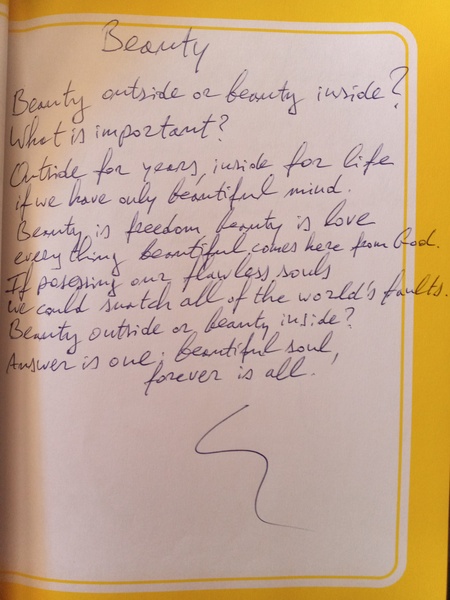 Beauty
Beauty outside or beauty inside?
What is important?
Outside for years, inside for life
if we have only beautiful mind.
Beauty is freedom, beauty is love
every thing beautiful comes here from God.
If posessing our flawless souls
we could snatch all of the world's faults.
Beauty outside or beauty inside?
Answer is one: beautiful soul,
forever is all.